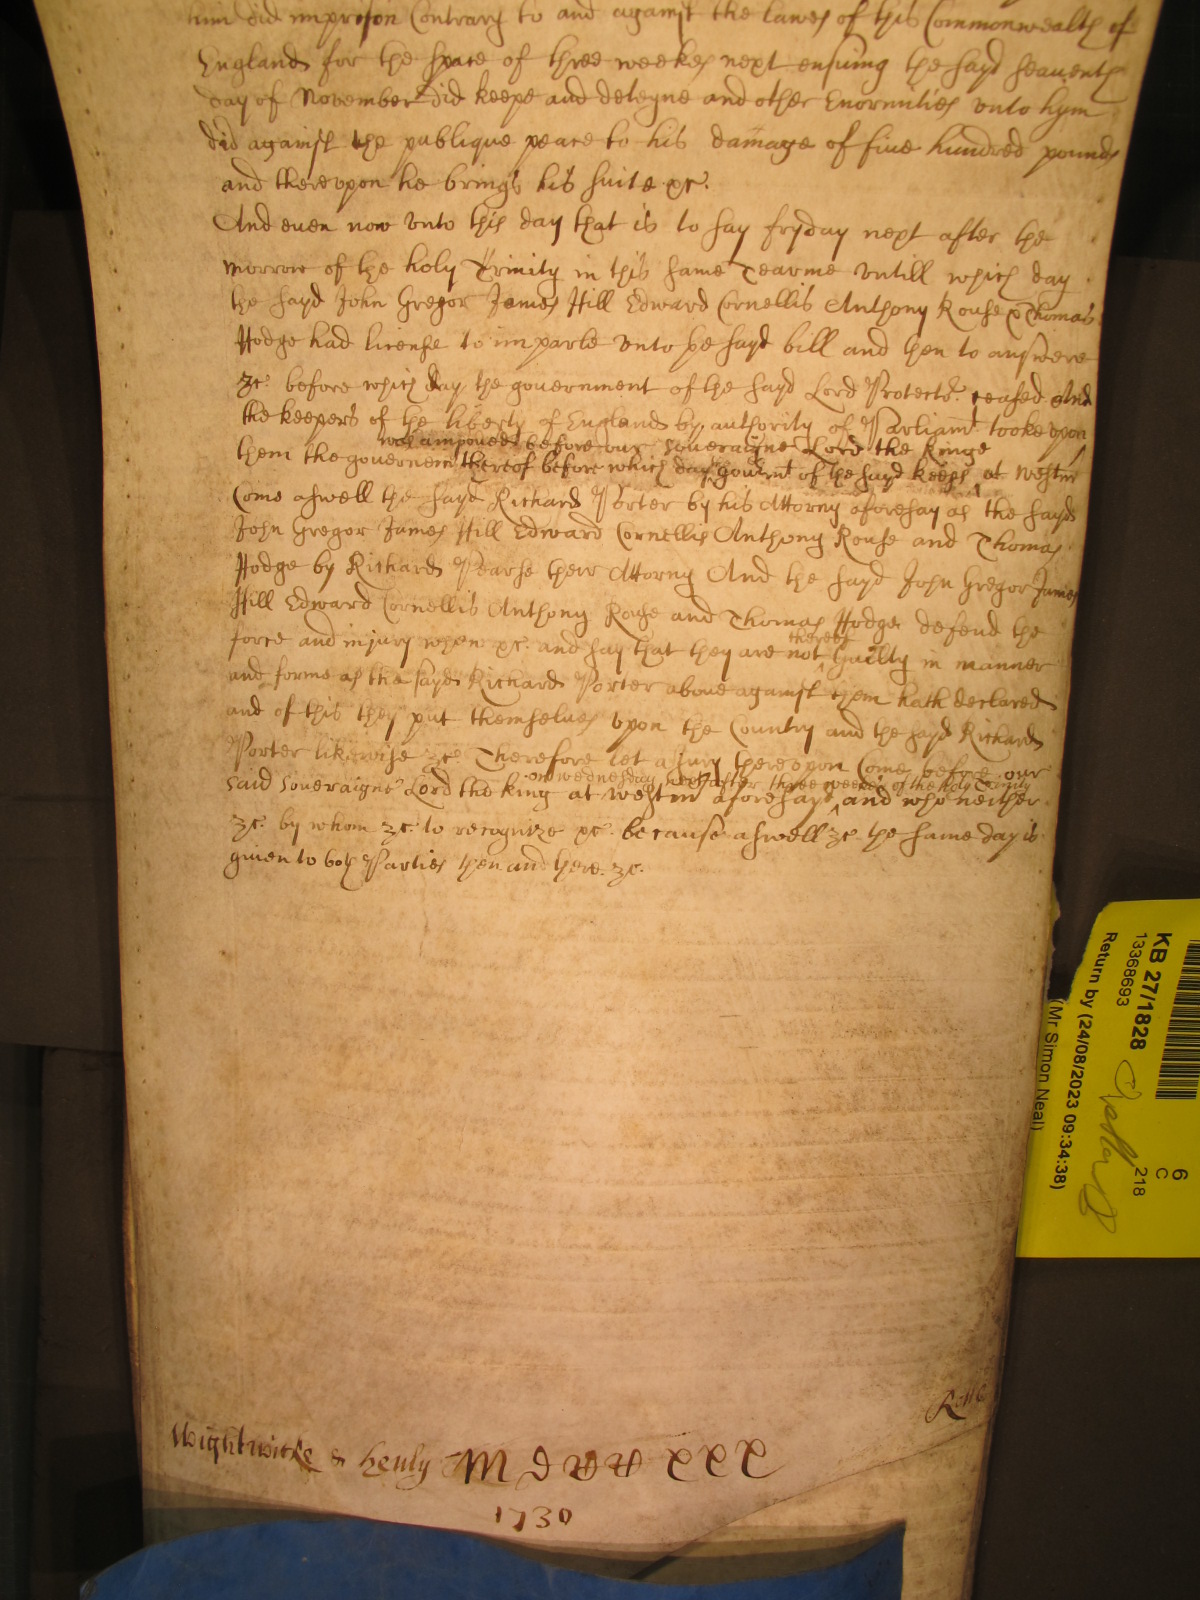 him did imprison Contrary to and against the lawes of this Commonwealth of
England for the space of three weekes next ensuing the sayd seaventh
day of November did keepe and deteyne and other Enormities unto hym
did against the publique peace to his damage of five hundred pounds
and thereupon he brings his suite &c.
And even now unto this day that is to say fryday next after the
morrow of the holy Trinity in this same Tearme untill which day
the sayd John Gregor James Hill Edward Cornellis Anthony Rouse & Thomas
Hodge had license to imparle unto the sayd bill and then to answere
&c. before which day the government of the sayd Lord Protector ceased And
the keepers of the liberty of England by authority of Parliamt tooke upon
before our Soveraigne Lord the Kinge
them the governmt thereof before which day govermt of the sayd keeps at Westmr
Come aswell the sayd Richard Porter by his Attorny aforesay as the sayd
John Gregor James Hill Edward Cornellis Anthony Rouse and Thomas
Hodge by Richard Pearse their Attorny And the sayd John Gregor James
Hill Edward Cornellis Anthony Rouse and Thomas Hodge defend the
thereof
force and injury when &c. and say that they are not Guilty in manner
and forme as the sayd Richard Porter above against them hath declared
and of this they put themselves upon the Country and the sayd Richard
Porter likewise &c Therefore let a Jury thereupon Come before our
on wednesday next after three weekes of the holy Trinity
said Soveraigne Lord the king at Westmr aforesayd and who neither
&c. by whom &c. to recognize &c. because aswell &c. the same day is
given to both Parties then and there. &c.
Rolle
Wightwicke & Henly M D
1730
KB 27/1828
13368693
Return by (24/08/2023 09:34:38)
(Mr Simon Neal)
6
C
218